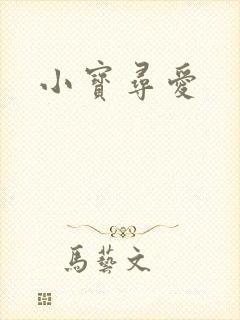 小寶尋愛
馬藝文